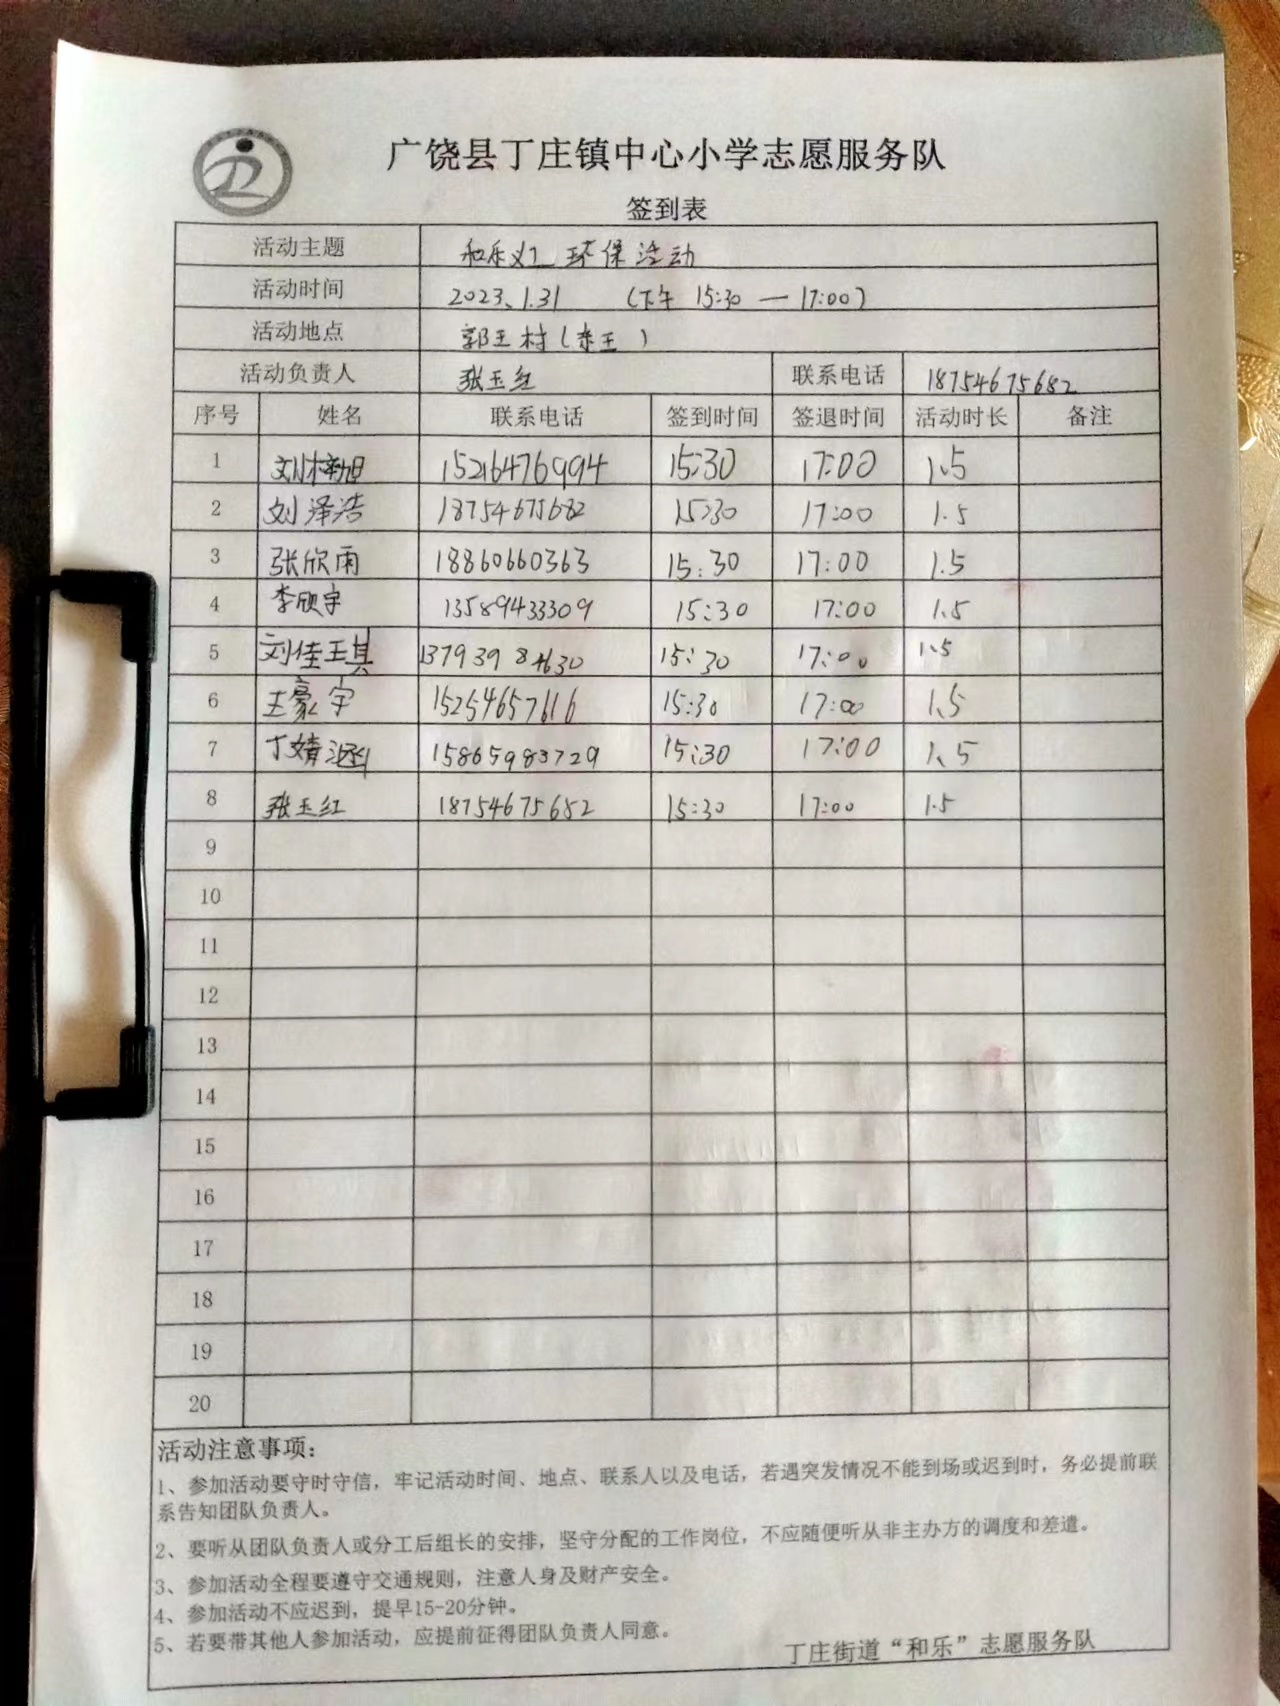 广饶县丁庄镇中心小学志愿服务队
签到表
活动主题 和乐义工环保活动
活动时间 2023.1.31 (下午 15:30 — 17:00)
活动地点 郭王村(东王)
活动负责人 张玉红 联系电话 18754675682
序号 姓名 联系电话 签到时间 签退时间 活动时长 备注
1 刘梓旭 15216476994 15:30 17:00 1.5
2 刘泽浩 18754675682 15:30 17:00 1.5
3 张欣雨 18860660363 15:30 17:00 1.5
4 李欣宇 13589433309 15:30 17:00 1.5
5 刘佳琪 15:30 17:00 1.5
6 王豪宇 15254657616 15:30 17:00 1.5
7 丁婧涵 15865983729 15:30 17:00 1.5
8 张玉红 18754675652 15:30 17:00 1.5
9
10
11
12
13
14
15
16
17
18
19
20
活动注意事项:
1、参加活动要守时守信,牢记活动时间、地点、联系人以及电话,若遇突发情况不能到场或迟到时,务必提前联
系告知团队负责人。
2、要听从团队负责人或分工后组长的安排,坚守分配的工作岗位,不应随便听从非主办方的调度和差遣。
3、参加活动全程要遵守交通规则,注意人身及财产安全。
4、参加活动不应迟到,提早15-20分钟。
5、若要带其他人参加活动,应提前征得团队负责人同意。
丁庄街道“和乐”志愿服务队